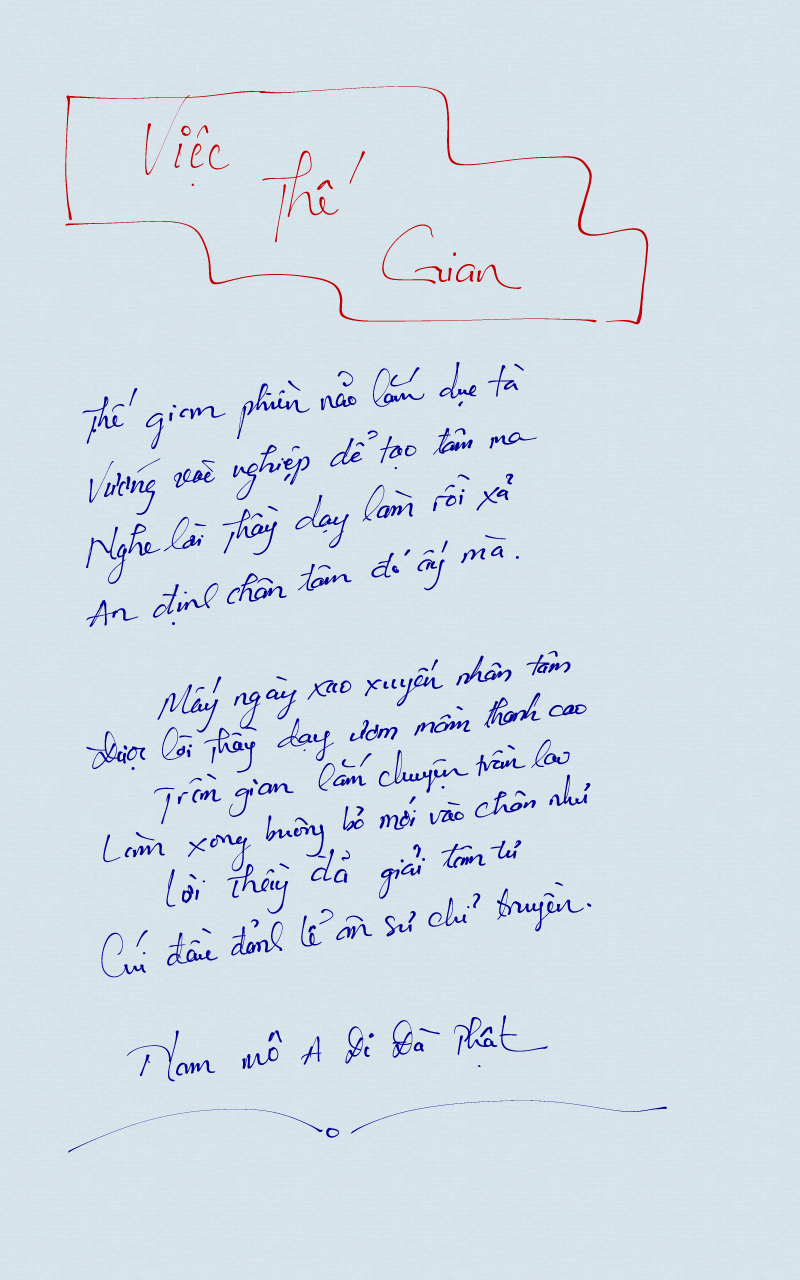 Việc
Thế
Gian
Thế gian phiền não lắm dục tà
Vướng vào nghiệp dể tạo tâm ma
Nghe lời Thầy dạy làm rồi xả
An định chân tâm đó ấy mà.
Mấy ngày xao xuyến nhân tâm
Được lời Thầy dạy ươm mầm thanh cao
Trần gian lắm chuyện trần lao
Làm xong buông bỏ mới vào chân như
Lời Thầy đả giải tâm tư
Cúi đầu đảnh lể ân sư chỉ truyền.
Nam mô A Di Đà Phật